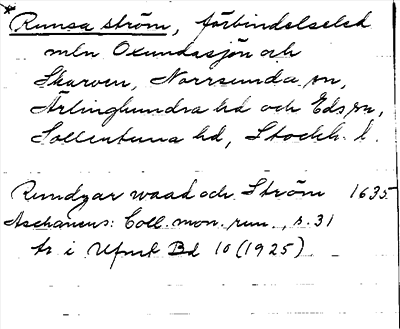 * Runsa ström, förbindelseled
mln Oxundasjön och
Skarven, Norrsunda sn,
Ärlinghundra hd och Eds sn,
Sollentuna hd, Stockh. l.
Rundzar waad och Ström 1635
Aschaneus: Coll. mon. run., s. 31
tr. i Ufmt Bd 10 (1925)